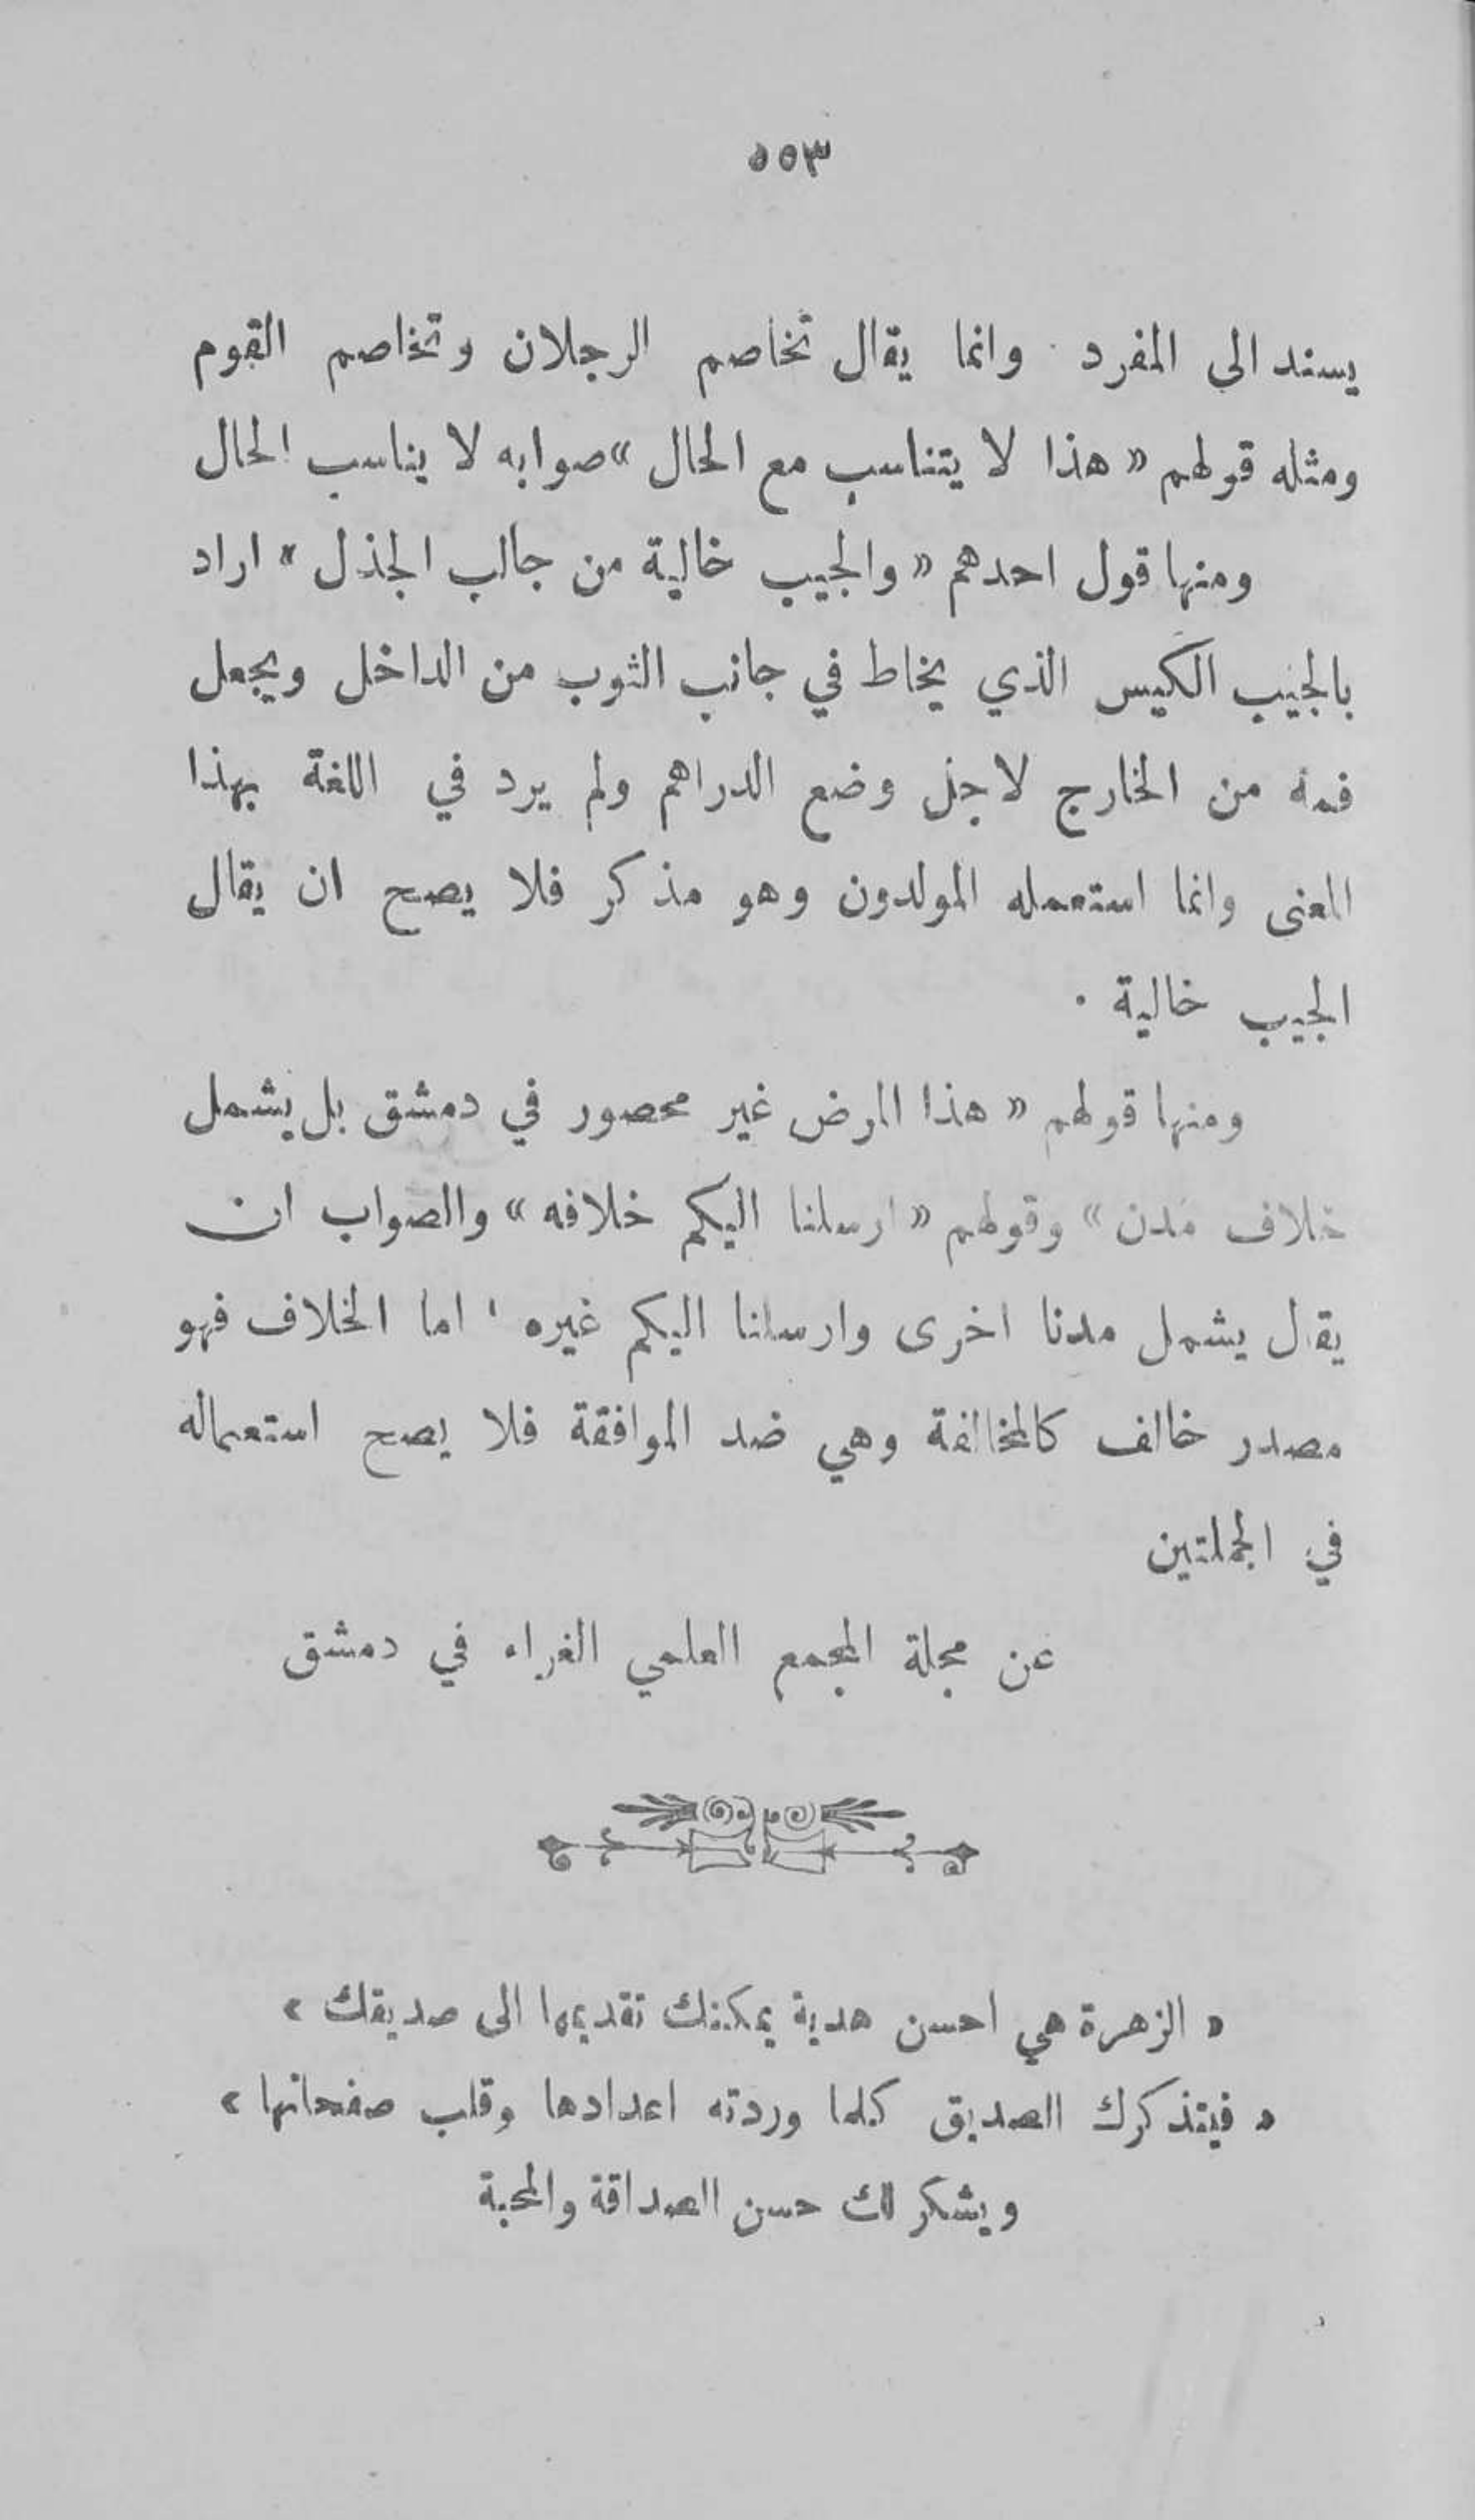 ٥٥٣
يسند الى المفرد . وانما يقال تخاصم الرجلان وتخاصم القوم
ومثله قولهم « هذا لا يتناسب مع الحال » صوابه لا يناسب الحال
ومنها قول احدهم « والجيب خالية من جالب الجذل » اراد
بالجيب الكيس الذي يخاط في جانب الثوب من الداخل ويجعل
فمه من الخارج لاجل وضع الدراهم ولم يرد في اللغة بهذا
المعنى وانما استعمله المولدون وهو مذكر فلا يصح ان يقال
الجيب خالية .
ومنها قولهم « هذا المرض غير محصور في دمشق بل يشمل
خلاف مدن » وقولهم « ارسلنا اليكم خلافه » والصواب ان
يقال يشمل مدنا اخرى وارسلنا اليكم غيره ' اما الخلاف فهو
مصدر خالف كالمخالفة وهي ضد الموافقة فلا يصح استعماله
في الجملتين
عن مجلة المجمع العلمي الغراء في دمشق
« الزهرة هي احسن هدية يمكنك تقديمها الى صديقك »
« فيتذكرك الصديق كلما وردته اعدادها وقلب صفحاتها »
ويشكر لك حسن الصداقة والمحبة